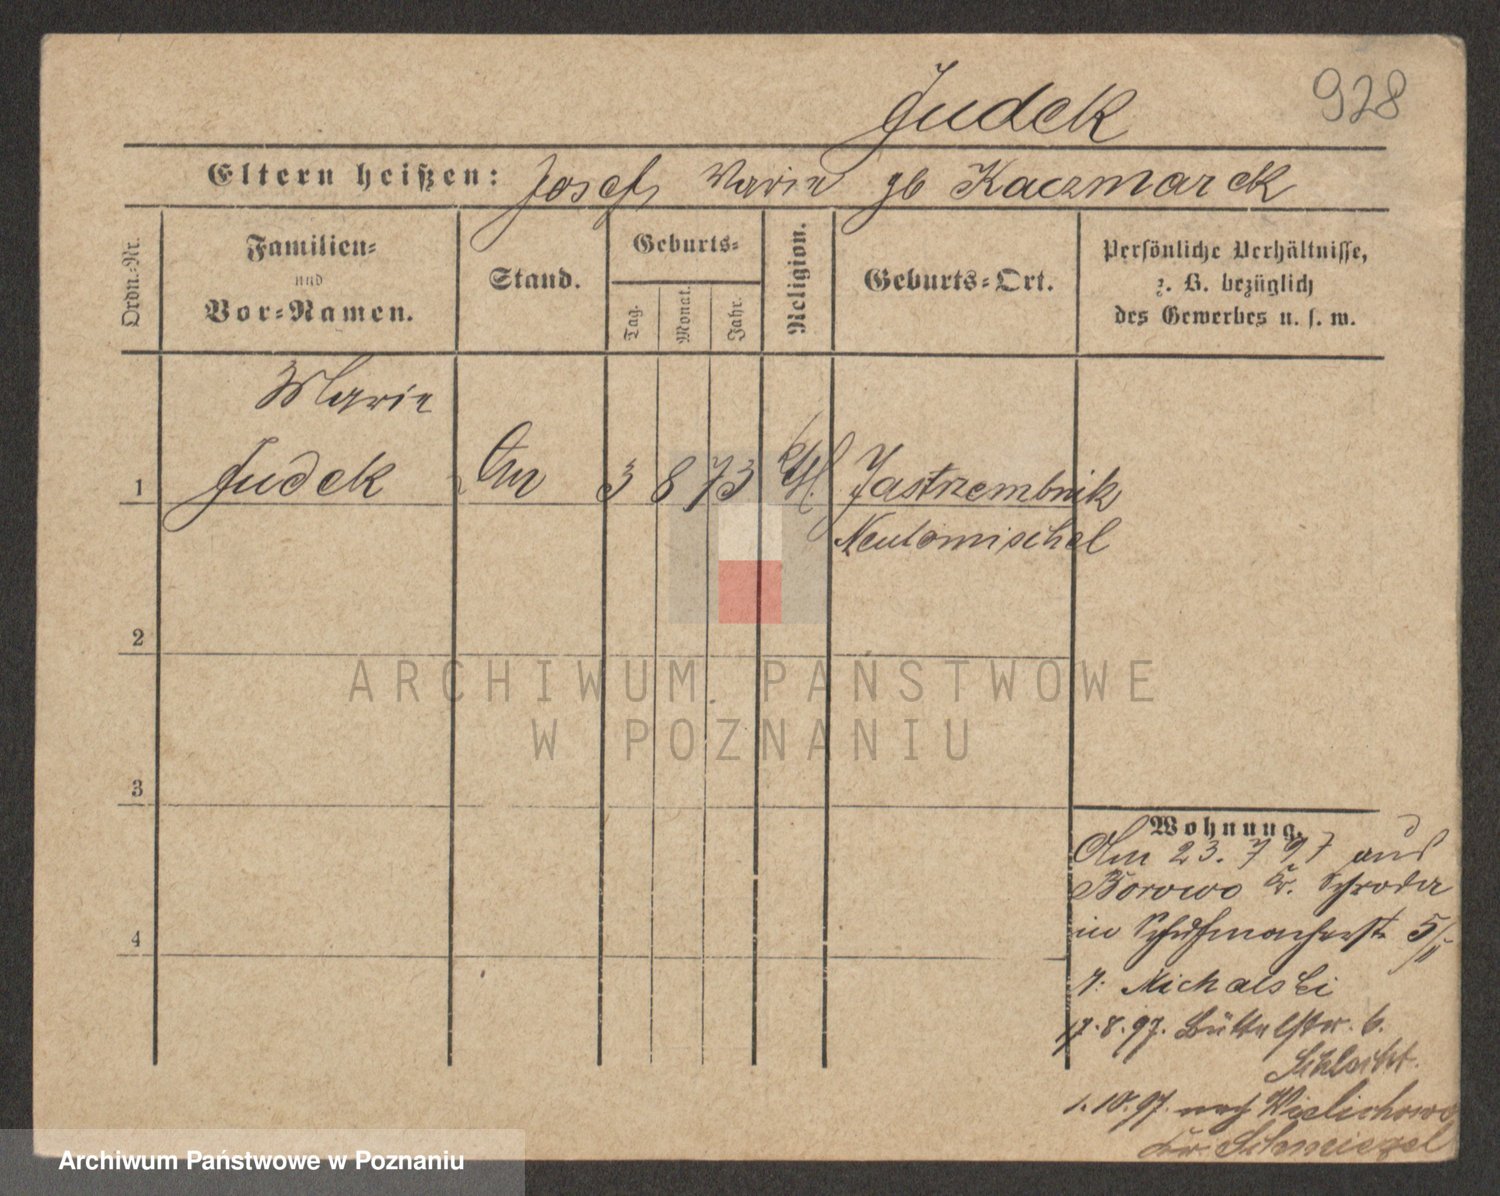 928
Judek
Eltern heißen: Josef, Marie gb Kaczmarek
Ordn.-Nr.
Familien-
und
Vor-Namen.
Stand.
Geburts-
Tag.
Monat.
Jahr.
Religion.
Geburts-Ort.
Persönliche Verhältnisse,
z. B. bezüglich
des Gewerbes u. s. w.
Marie
1 Judek 3 8 73 kth. Jastrzembnik
Neutomischel
2
3
4
Wohnung.
Am 23. 7 97 aus
Borowo Kr. Schroda
in Schuhmacherstr 5/II
Michalski
17.8.97. Büttelstr. 6.
1.10.97. nach Wielichowo
Kr. Schmiegel
ARCHIWUM PAŃSTWOWE
W POZNANIU
Archiwum Państwowe w Poznaniu